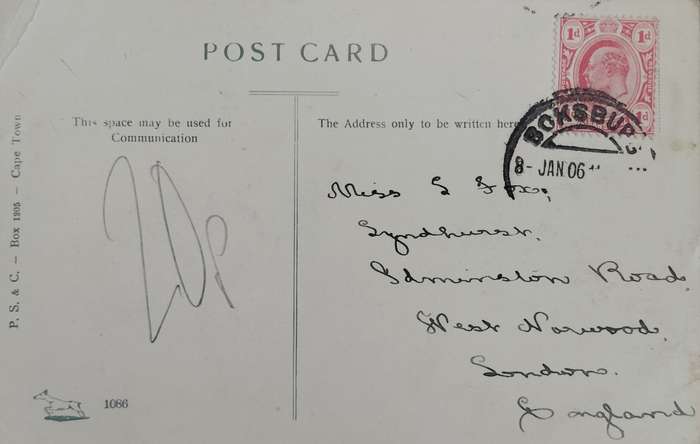 POST CARD
This space may be used for
Communication
The Address only to be written here
1d 1d
1d
BOKSBURG
8- JAN 06
Miss Fox,
Lyndhurst,
Edminston Road,
West Norwood,
London.
England
P. S. & C. — Box 1295 — Cape Town
1086